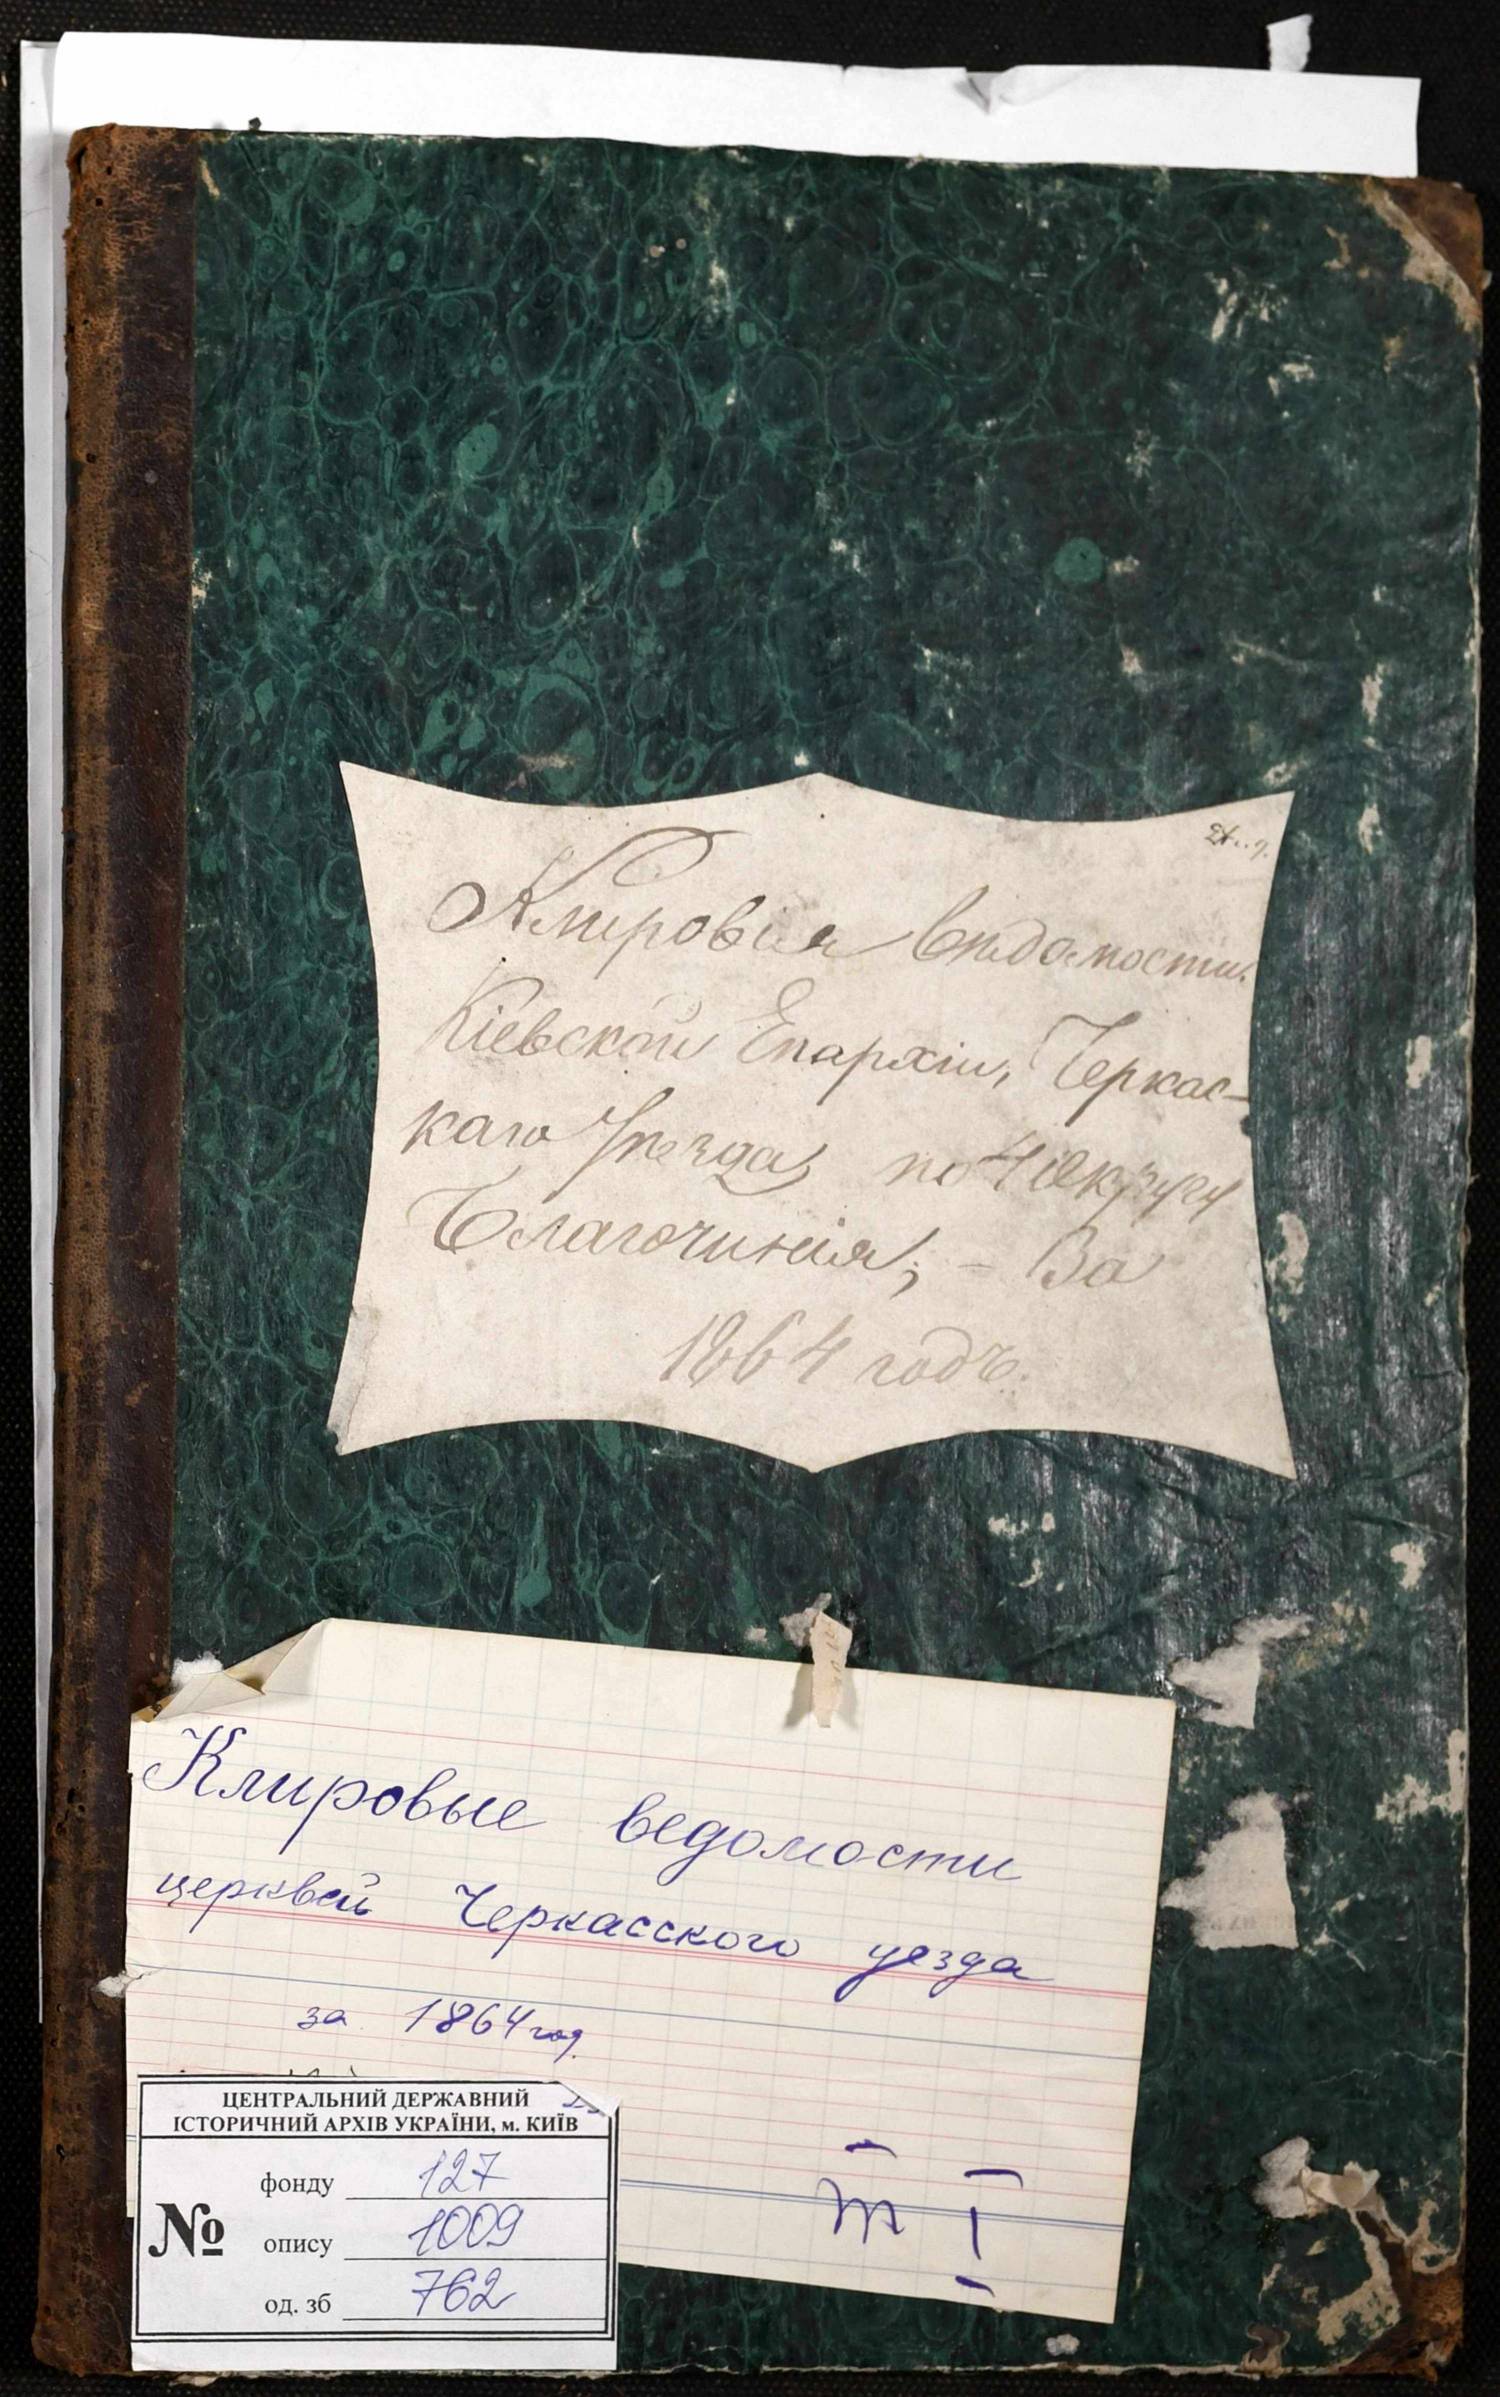 Клировыя вѣдомости.
Кіевской Епархіи, Черкас-
каго Уѣзда, по 4 округу
Благочинія; – За
1864 годъ.
Клировые ведомости
церквей Черкасского уезда
за 1864 год.
т I
ЦЕНТРАЛЬНИЙ ДЕРЖАВНИЙ
ІСТОРИЧНИЙ АРХІВ УКРАЇНИ, м. КИЇВ
№
фонду 127
опису 1009
од. зб 762